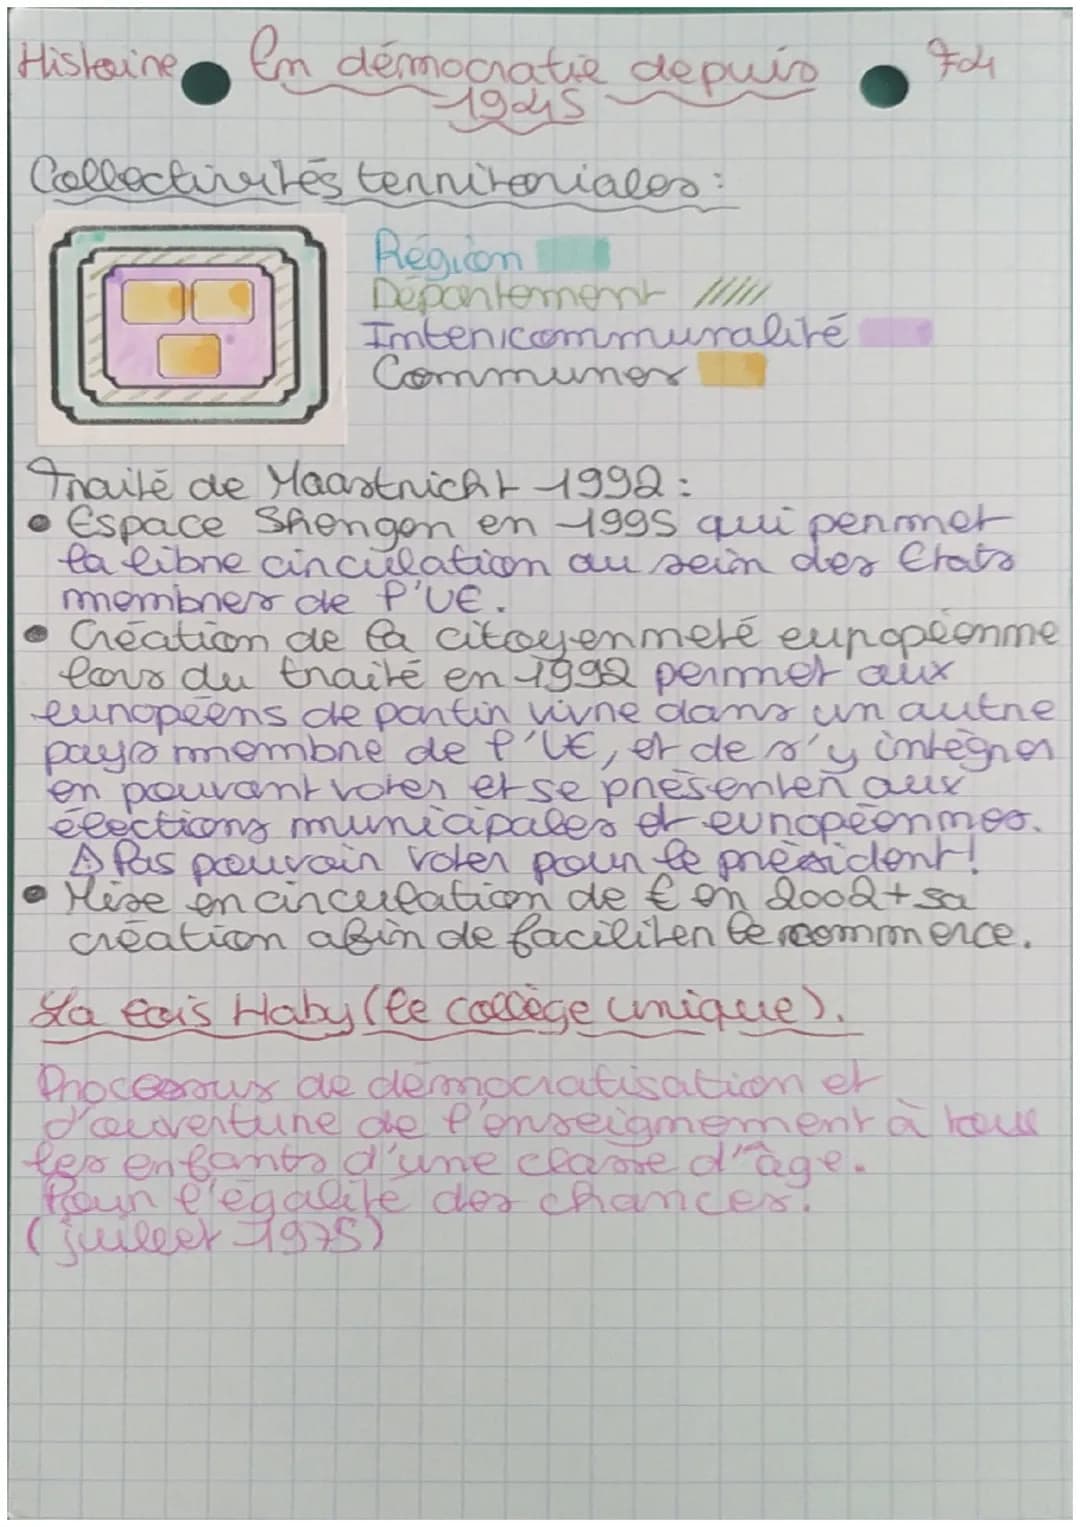 Histoire En démocratie depuis F04
1945
Collectivités territoriales :
Région
Département
Intercommunalité
Communes
Traité de Maastricht 1992 :
• Espace Shengen en 1995 qui permet
la libre circulation au sein des Etats
membres de l'UE.
• Création de la citoyenneté européenne
lors du traité en 1992 permet aux
européens de partir vivre dans un autre
pays membre de l'UE, et de s'y intégrer
en pouvant voter et se présenter aux
élections municipales et européennes.
⚠ Pas pouvoir voter pour le président!
• Mise en circulation de € en 2002 + sa
création afin de faciliter le commerce.
La lois Haby (le collège unique).
Processus de démocratisation et
d'ouverture de l'enseignement à tous
les enfants d'une classe d'âge.
Pour l'égalité des chances.
(juillet 1975)